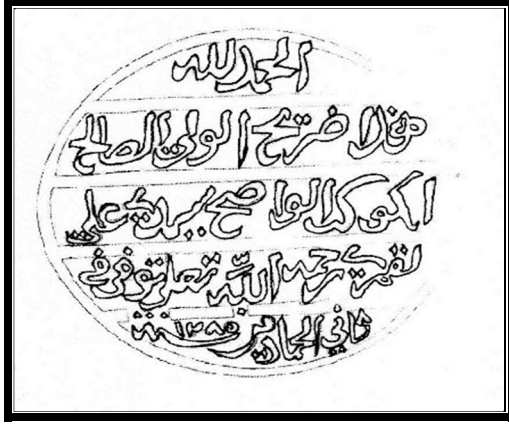 الحمد لله
هذا ضريح الولي الصالح
الكوكب الواضح سيدي علي
رحمه الله تعلى توفي في
ثاني الجمادين سنة